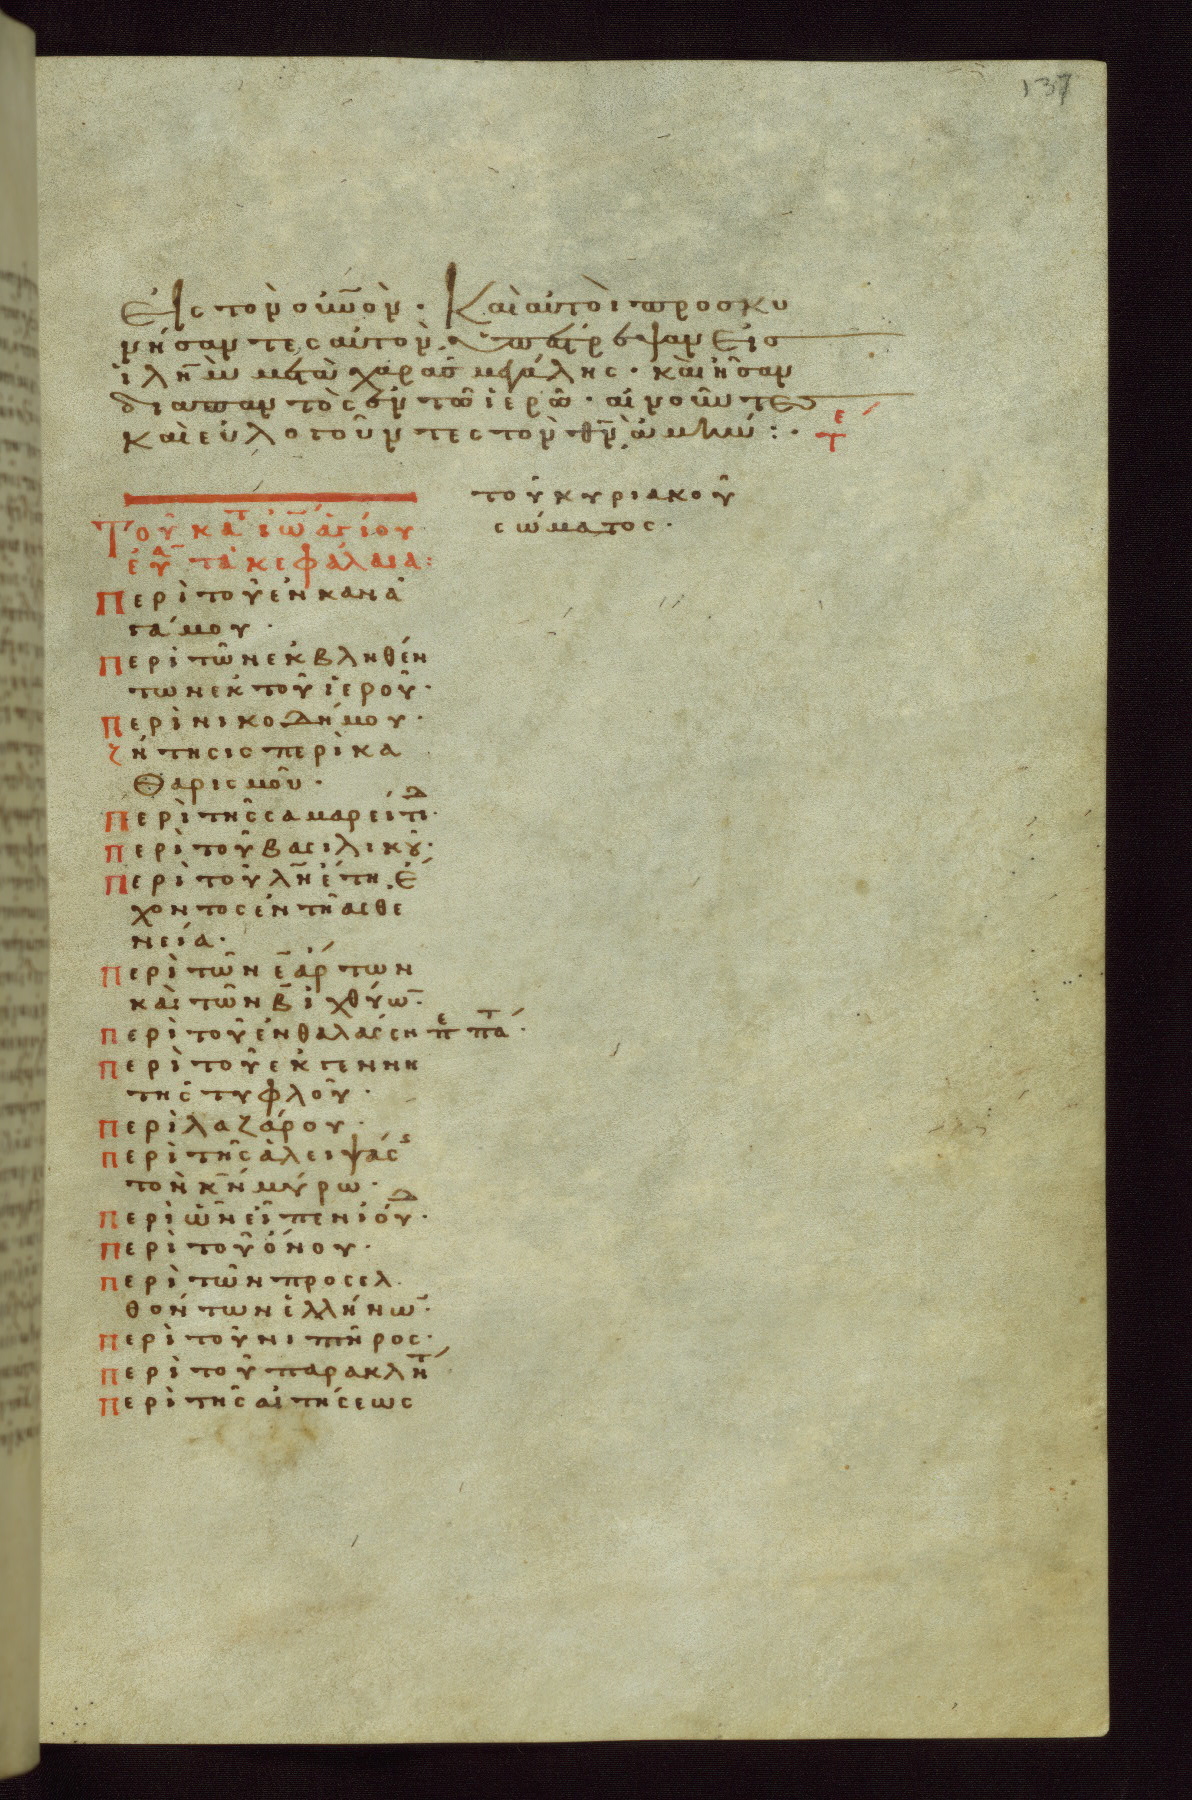 137
εἰς τὸν οὐ̅νο̅ν· Καὶ αὐτοὶ προσκυ
νήσαντες αὐτὸν, ὑπέστρεψαν εἰς
ἱλη̅μ μετὰ χαρᾶς μεγάλης· καὶ ἦσαν
διαπαντὸς ἐν τῶ ἱερῶ· αἰνοῦντες
καὶ εὐλογοῦντες τὸν θ̅ν̅ ἀμήν:· τε
τοῦ κυριακοῦ
σώματος·
Τοῦ κατ ἰω̅ ἁγίου
ἐυα τὰ κεφάλαια:
Περὶ τοῦ ἐν κανᾶ
γάμου·
Περὶ τῶν ἐκβληθέν
των ἐκ τοῦ ἱεροῦ·
Περὶ νικοδήμου·
Ζήτησις περὶ κα
θαρισμοῦ·
Περὶ τῆς σαμαρείτιδ·
Περὶ τοῦ βασιλικοῦ·
Περὶ τοῦ λ̅η̅ ἔτη ἔ
χοντος ἐν τῆ ἀσθε
νεία·
Περὶ τῶν ε̅ ἄρτων
καὶ τῶν β̅ ἰχθύω̅·
Περὶ τοῦ ἐν θαλάσση πε πατ·
Περὶ τοῦ ἐκ γεννη
τῆς τυφλοῦ·
Περὶ λαζάρου·
Περὶ τῆς ἀλειψάσς
τὸν κ̅ν̅ μύρω·
Περὶ ὧν εἶπεν ἰούδ·
Περὶ τοῦ ὄνου·
Περὶ τῶν προσελ
θόντων ἑλλήνω̅·
Περὶ τοῦ νιπτῆρος·
Περὶ τοῦ παρακλήτ
Περὶ τῆς αἰτήσεως